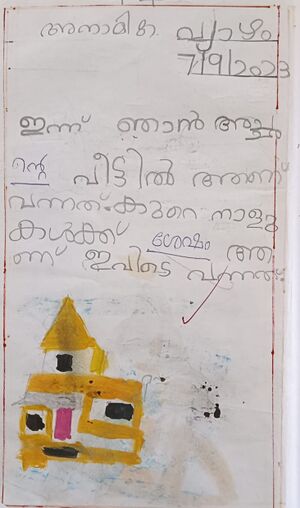 അനാമിക വ്യാഴം
7/9/2023
ഇന്ന് ഞാൻ അച്ഛ
ന്റെ വീട്ടിൽ ആണ്
വന്നത്. കുറെ നാളു
കൾക്ക് ശേഷം ആ
ണ് ഇവിടെ വന്നത്.